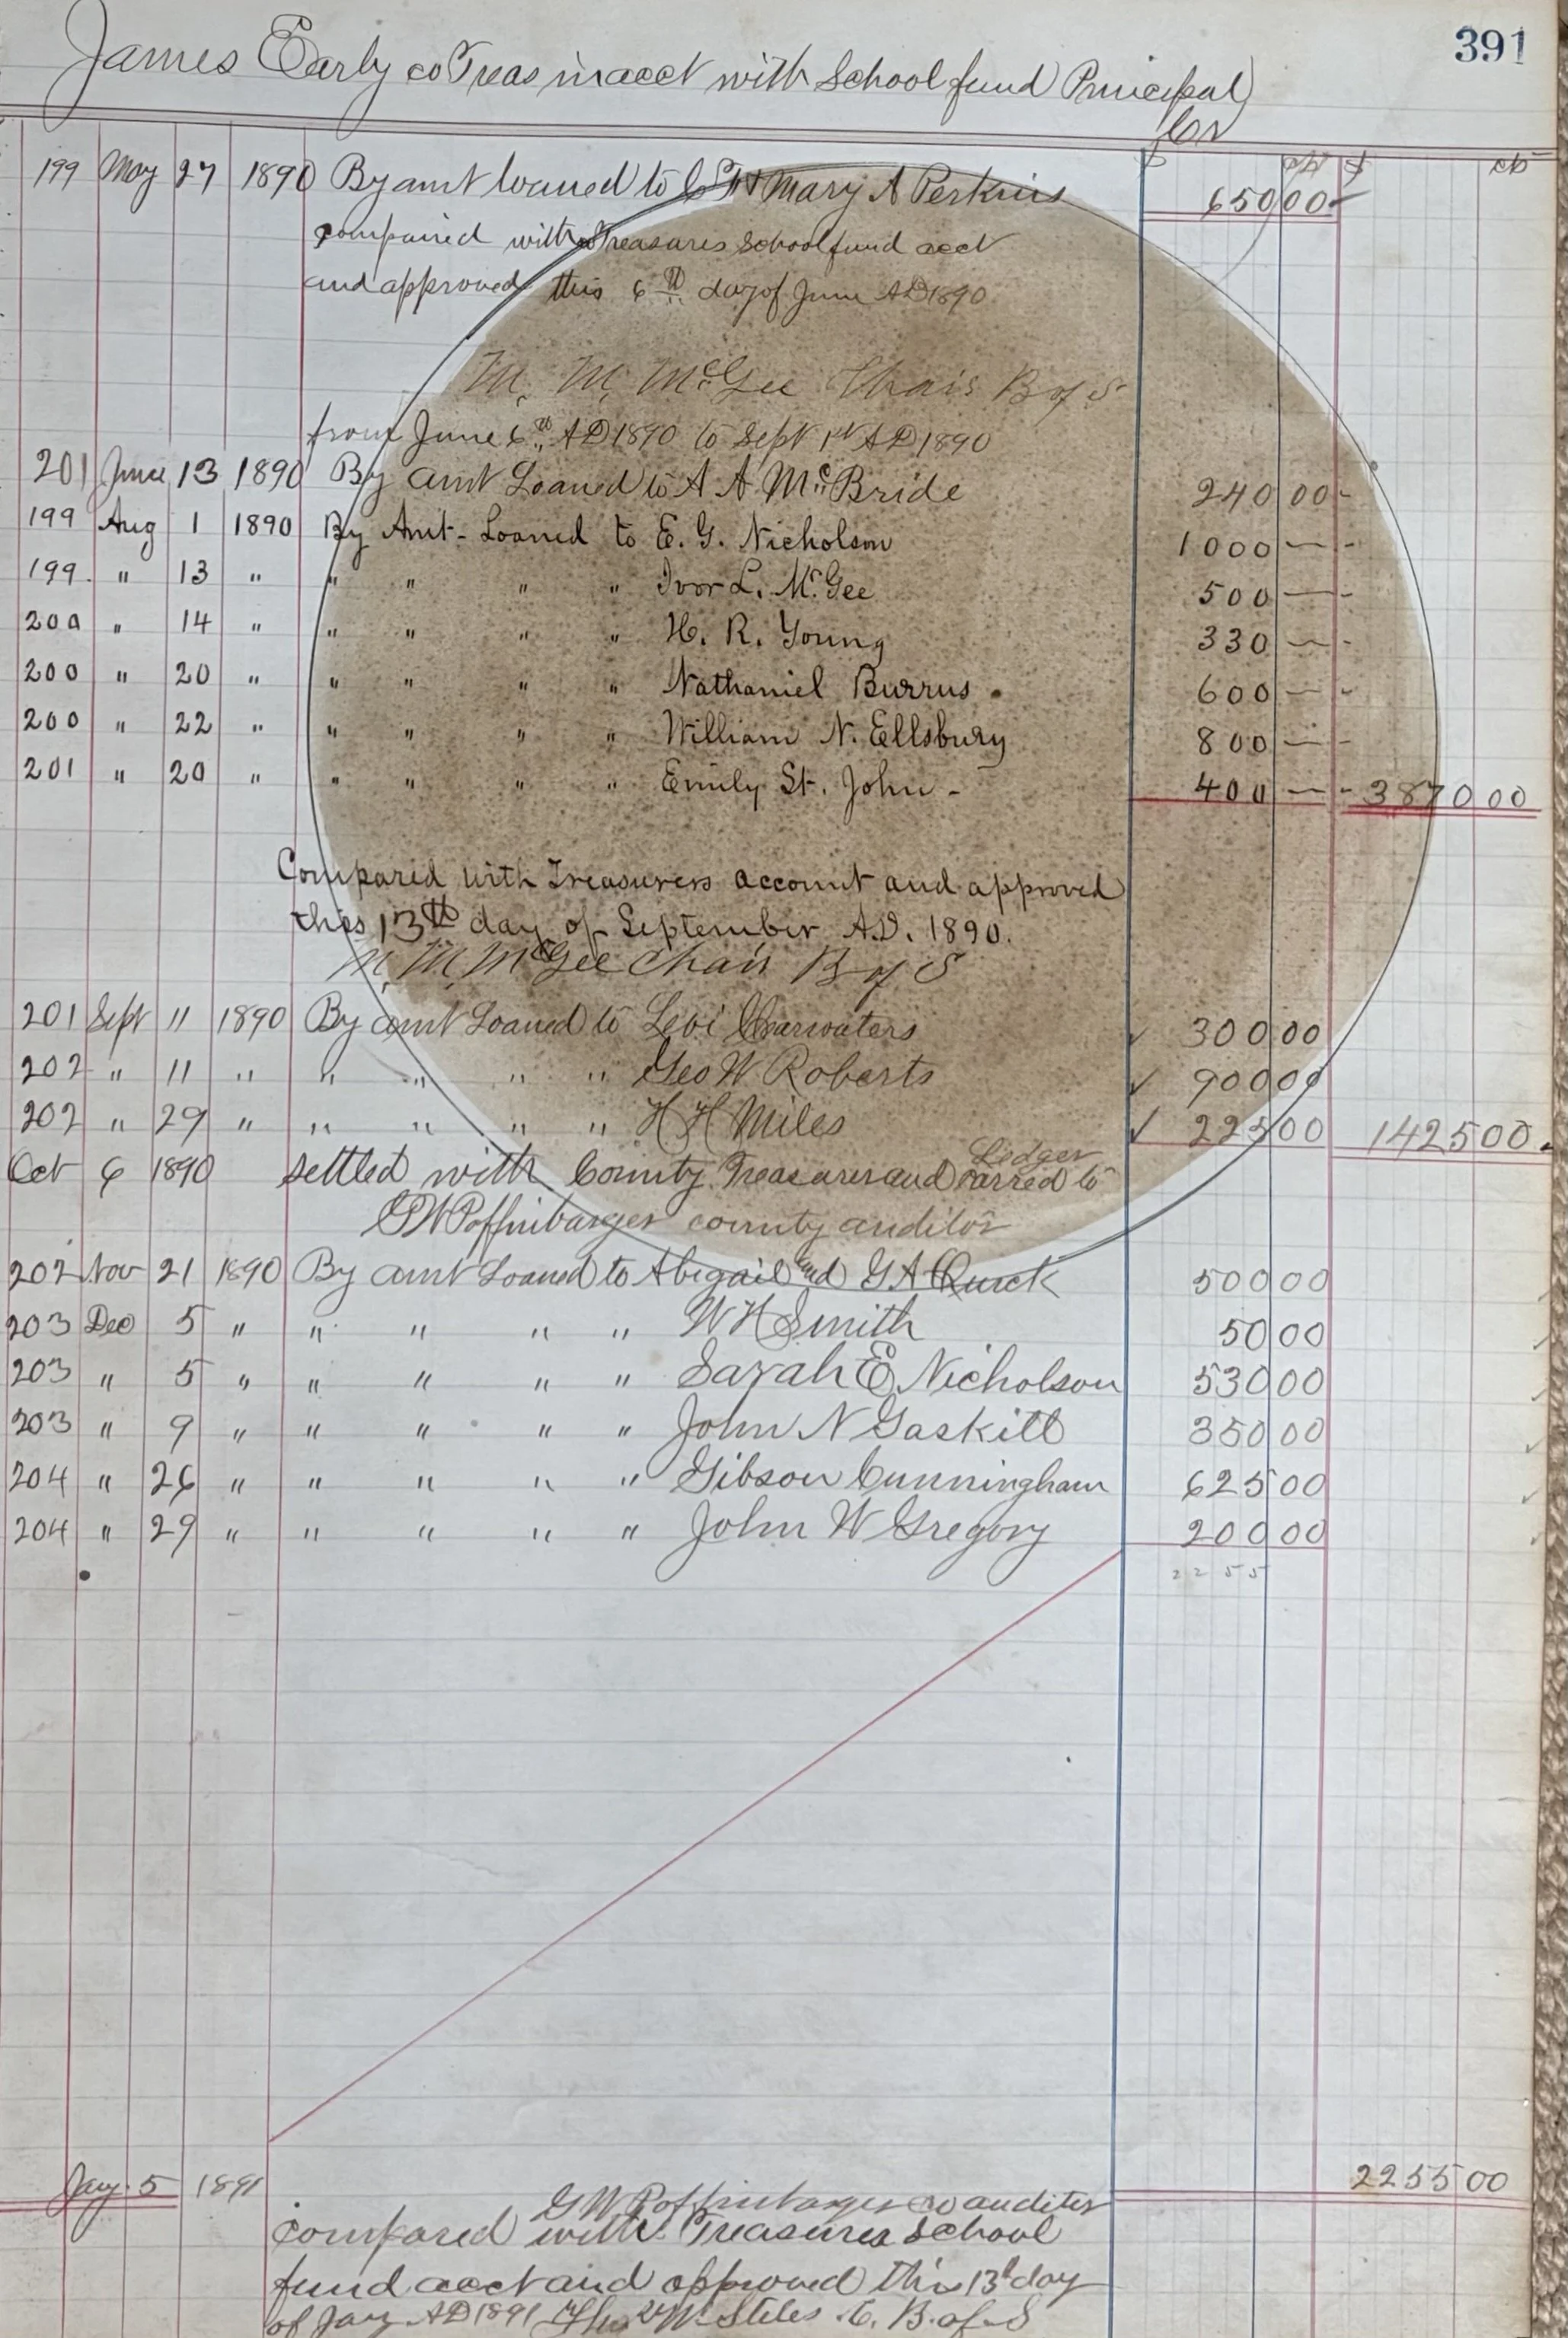 391
James Early co Treas in acct with School fund Principal
Cr
$ cts $ cts
199 May 27 1890 By amt loaned to Mary A Perkins 650 00
compaired with Treasures School fund acct
and approved this 6th day of June AD 1890
M. M. McGee Chair B of S
from June 6th AD 1890 to Sept 1st AD 1890
201 June 13 1890 By amt Loaned to A A McBride 240 00
199 Aug 1 1890 By Amt Loaned to E. G. Nicholson 1000 —
199 " 13 " " " " " Ivor L. McGee 500 —
200 " 14 " " " " " H. R. Young 330 —
200 " 20 " " " " " Nathaniel Burrus 600 —
200 " 22 " " " " " William N. Ellsbury 800 —
201 " 20 " " " " " Emily St. John - 400 — 3870 00
Compared with Treasurers account and approved
this 13th day of September A.D. 1890.
M. M. McGee Chair B of S
201 Sept 11 1890 By amt Loaned to Levi Clearwaters ✓ 300 00
202 " 11 " " " " " Geo W Roberts ✓ 900 00
202 " 29 " " " " " H H Miles ✓ 225 00 1425 00
Oct 6 1890 settled with County Treasurer and Ledger carred to
G W Poffinbarger county auditor
202 Nov 21 1890 By amt Loaned to Abigail and G A Quick 500 00
203 Dec 5 " " " " " W H Smith 50 00
203 " 5 " " " " " Sarah E Nicholson 530 00
203 " 9 " " " " " John N Gaskill 350 00
204 " 26 " " " " " Gibson Cunningham 625 00
204 " 29 " " " " " John W Gregory 200 00
2255
Jany. 5 1891 2255 00
G W Poffinbarger co auditor
compared with Treasures School
fund acct and approved this 13th day
of Jany AD 1891 Stiles C. B. of S